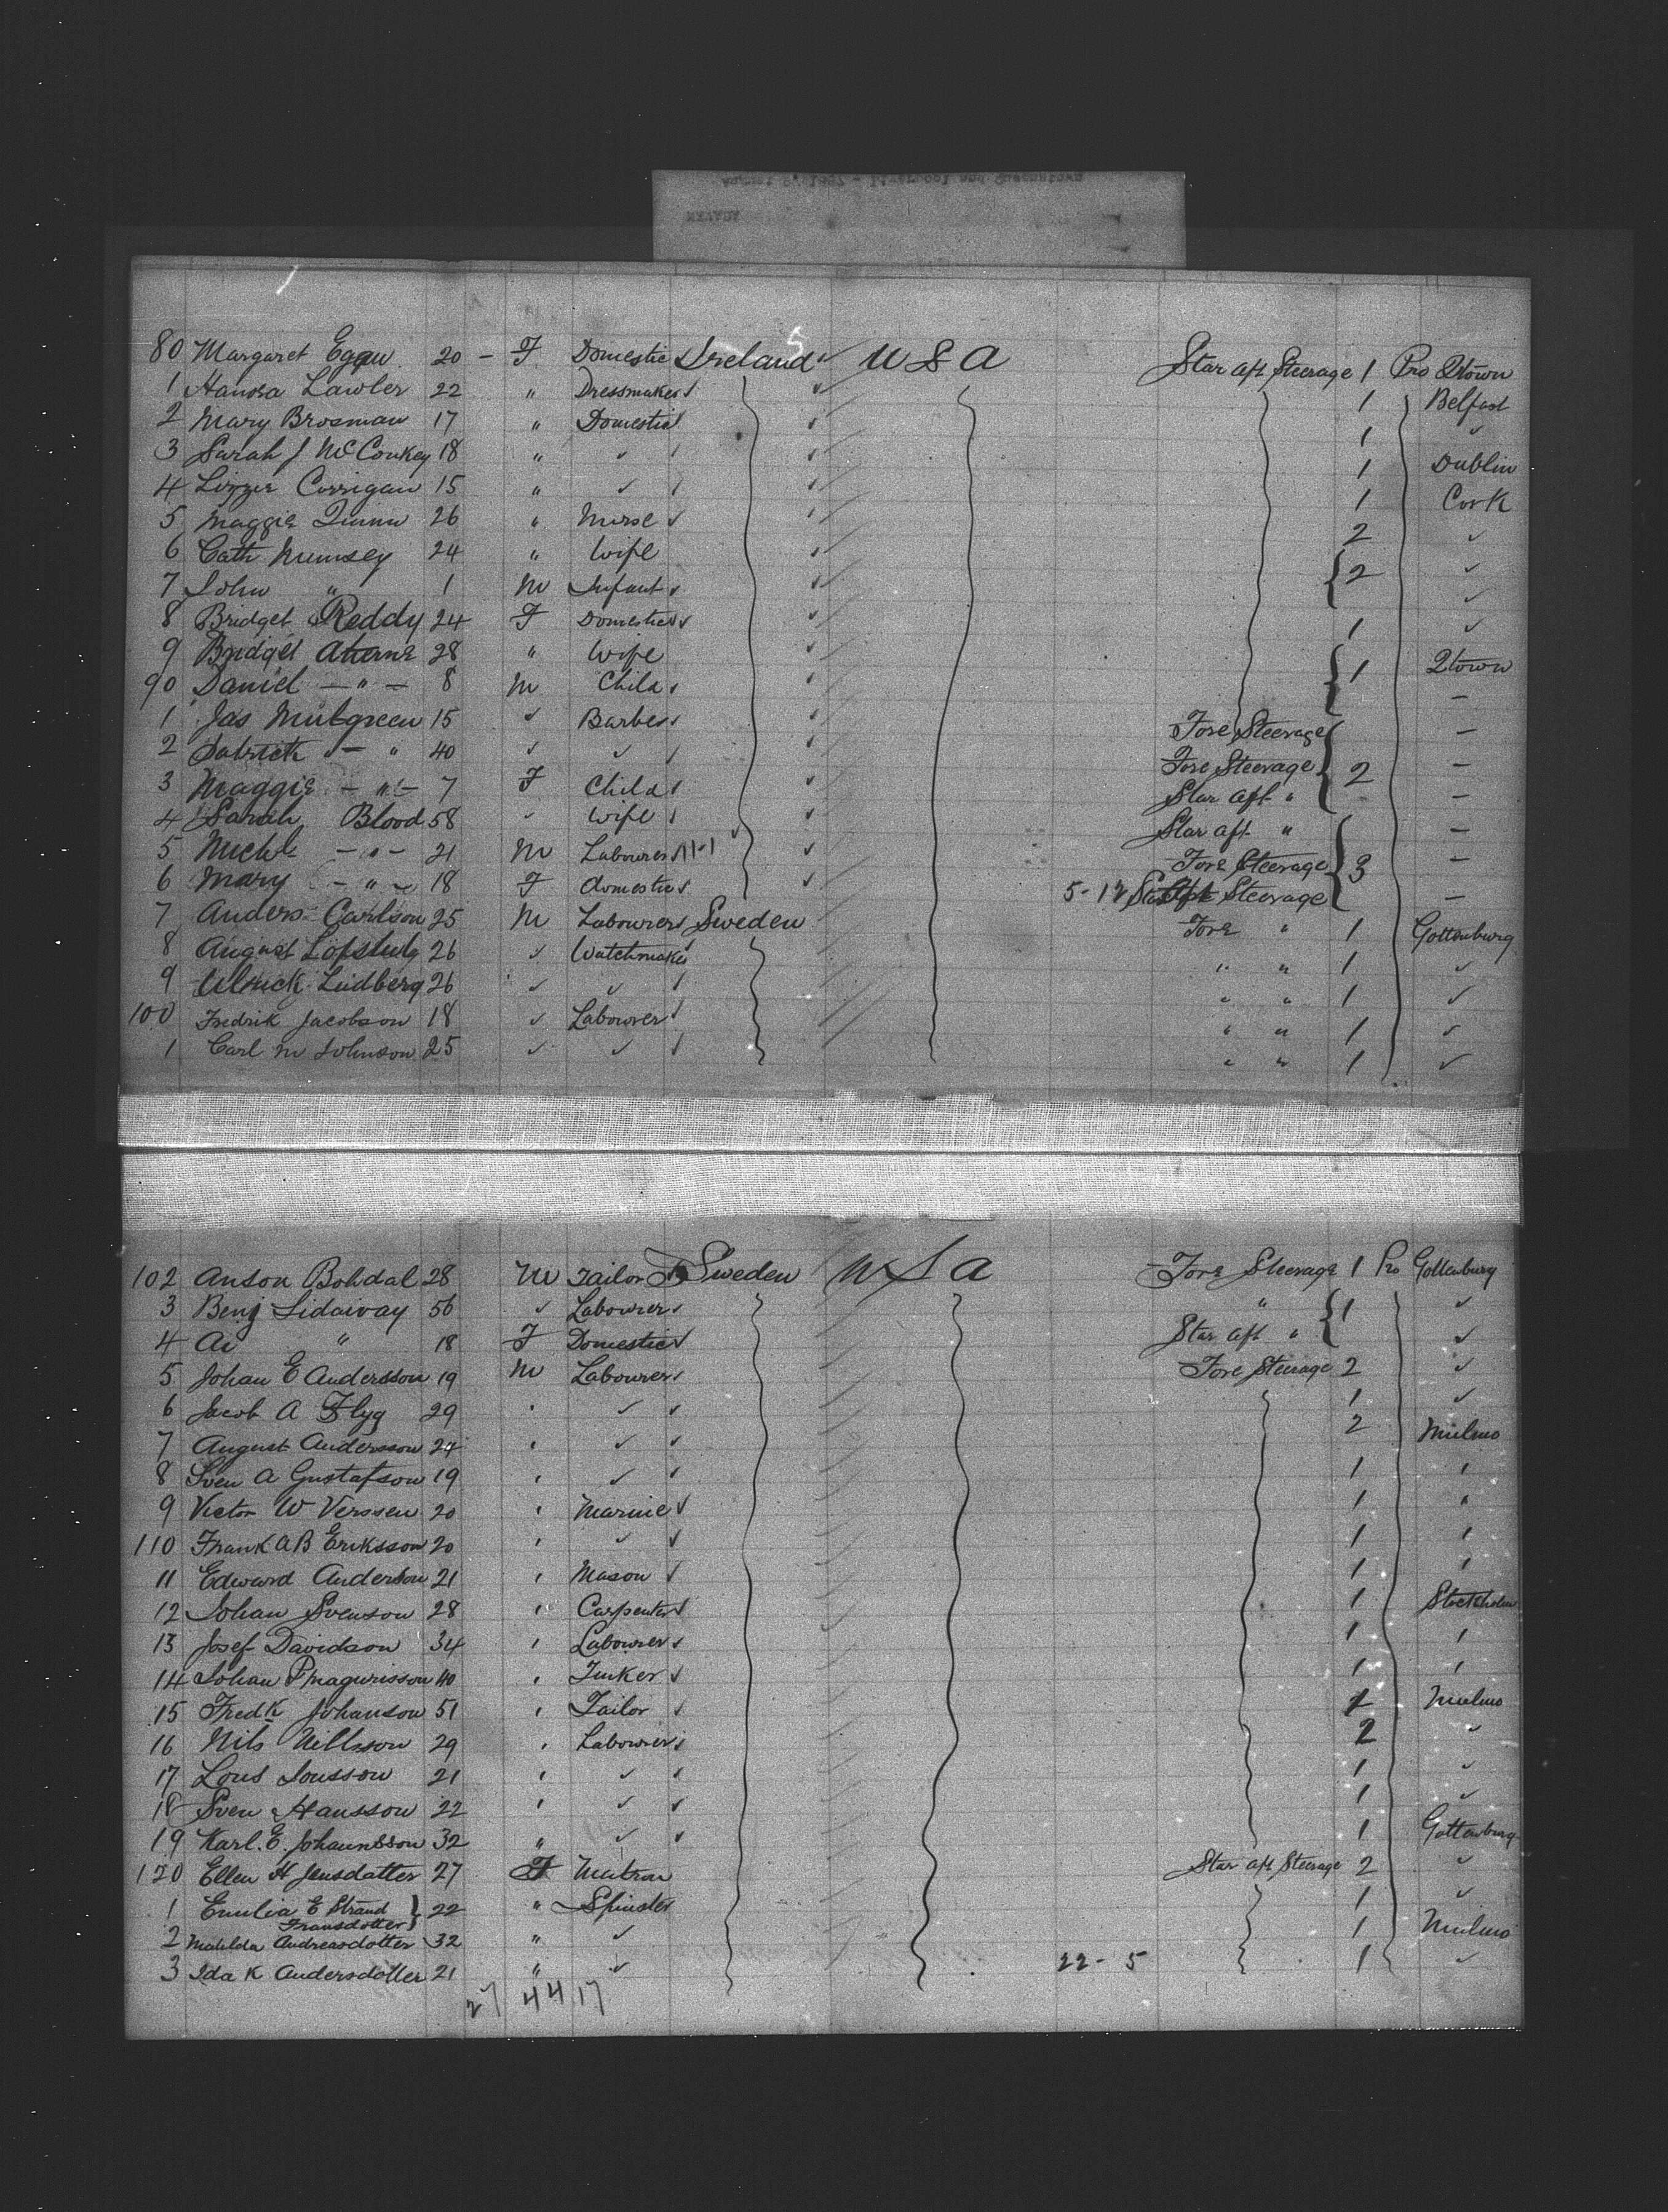 80 Margaret Egan 20 - F Domestic Ireland USA Star aft Steerage 1 Pro Qtown
1 Hanora Lawler 22 " Dressmaker 1 Belfast
2 Mary Brosman 17 " Domestic 1 ✓
3 Sarah J McConkey 18 " ✓ 1 Dublin
4 Lizzie Corrigan 15 " ✓ 1 Cork
5 Maggie Quinn 26 " Nurse 2 ✓
6 Cath 24 " Wife 2 ✓
7 John " 1 M Infant ✓
8 Bridget Reddy 24 F Domestic 1 ✓
9 Bridget Aherne 28 " Wife 1 Qtown
90 Daniel - " - 8 M Child -
1 Jas Mulgreen 15 ✓ Barber Fore Steerage -
2 Patrick - " 40 ✓ ✓ Fore Steerage 2 -
3 Maggie - " - 7 F Child Star aft " -
4 Sarah Blood 58 ✓ Wife Star aft " -
5 Michl - " - 21 M Labourer Fore Steerage 3 -
6 Mary - " - 18 F domestic 5-12 Star aft Steerage -
7 Anders Carlson 25 M Labourer Sweden Fore " 1 Gottenburg
8 August 26 ✓ Watchmaker " " 1 ✓
9 Ulrick Lindberg 26 ✓ ✓ " " 1 ✓
100 Fredrik Jacobson 18 ✓ Labourer " " 1 ✓
1 Carl M Johnson 25 ✓ ✓ " " 1 ✓
102 Anson Bohdal 28 M Tailor Sweden USA Fore Steerage 1 Pro Gottenburg
3 Benj Sidaway 56 ✓ Labourer " 1 ✓
4 " 18 F Domestic Star aft " ✓
5 Johan E Andersson 19 M Labourer Fore Steerage 2 ✓
6 Jacob A Flyg 29 ' ✓ 1 ✓
7 August Andersson 24 ' ✓ 2 Malmo
8 Sven A Gustafson 19 ' ✓ 1 '
9 Victor W Verssen 20 ' Marine 1 "
110 Frank AB Eriksson 20 ' ✓ 1 '
11 Edward Anderson 21 ' Mason 1 '
12 Johan Svenson 28 ' Carpenter 1 Stockholm
13 Josef Davidson 34 ' Labourer 1 '
14 Johan P Magnusson 40 ' Tinker 1 '
15 Fredk Johanson 51 ' Tailor 1 Malmo
16 Nils Nillsson 29 ' Labourer 2 ✓
17 Lons Jonsson 21 ' ✓ 1 ✓
18 Sven Hansson 22 ' ✓ 1 ✓
19 Karl. E. Johannsson 32 " ✓ 1 Gottenburg
120 Ellen H Jensdatter 27 F Matron Star aft Steerage 2 ✓
1 Emilia E Strand Fransdotter 22 " Spinster 1 ✓
2 Matilda Andreasdotter 32 " ✓ 1 Malmo
3 Ida K Andersdotter 21 " ✓ 22-5 1 ✓
27 44 17